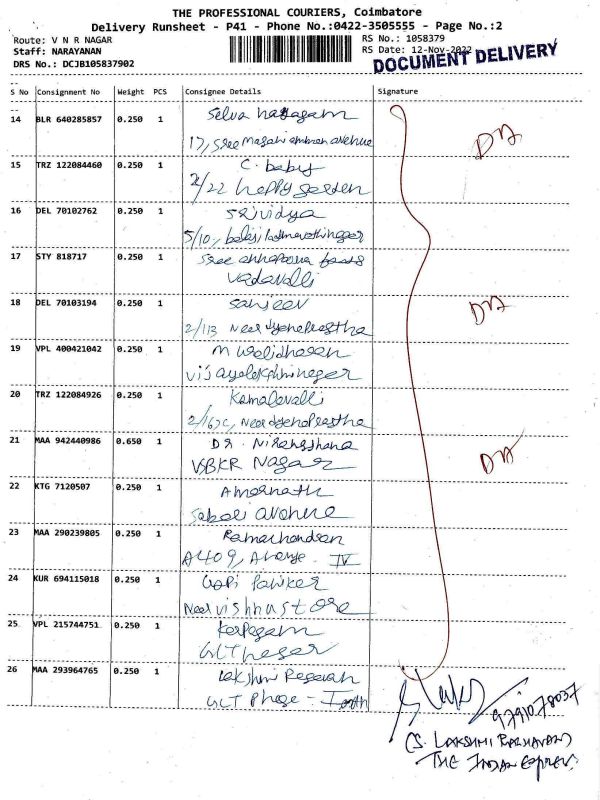 THE PROFESSIONAL COURIERS, Coimbatore
Delivery Runsheet - P41 - Phone No.:0422-3505555 - Page No.:2
Route: V N R NAGAR
RS No.: 1058379
Staff: NARAYANAN
RS Date: 12-Nov-2022
DRS No.: DCJB105837902
DOCUMENT DELIVERY
S No Consignment No Weight PCS Consignee Details Signature
14 BLR 640285857 0.250 1 Selva
17, Sree avenue
15 TRZ 122084460 0.250 1 C. baby
2/22 happy garden
16 DEL 70102762 0.250 1 Srividya
5/10,
17 STY 818717 0.250 1 Sree annapoorna foods
vadavalli
18 DEL 70103194 0.250 1 Sanjeev
2/113 Near
19 VPL 400421042 0.250 1 M
20 TRZ 122084926 0.250 1 Kamalavalli
Near
21 MAA 942440986 0.650 1 DR.
VSBKR Nagar
22 KTG 7120507 0.250 1 Amarnath
avenue
23 MAA 290239805 0.250 1 Ramachandran
A409, IV
24 KUR 694115018 0.250 1 Gopi
Near vishnu store
25 VPL 215744751 0.250 1 Karpagam
GCT nagar
26 MAA 293964765 0.250 1 Lakshmi
GCT Phase -
9791078037
(S. LAKSHMI RAGHAVAN)
THE INDIAN EXPRESS